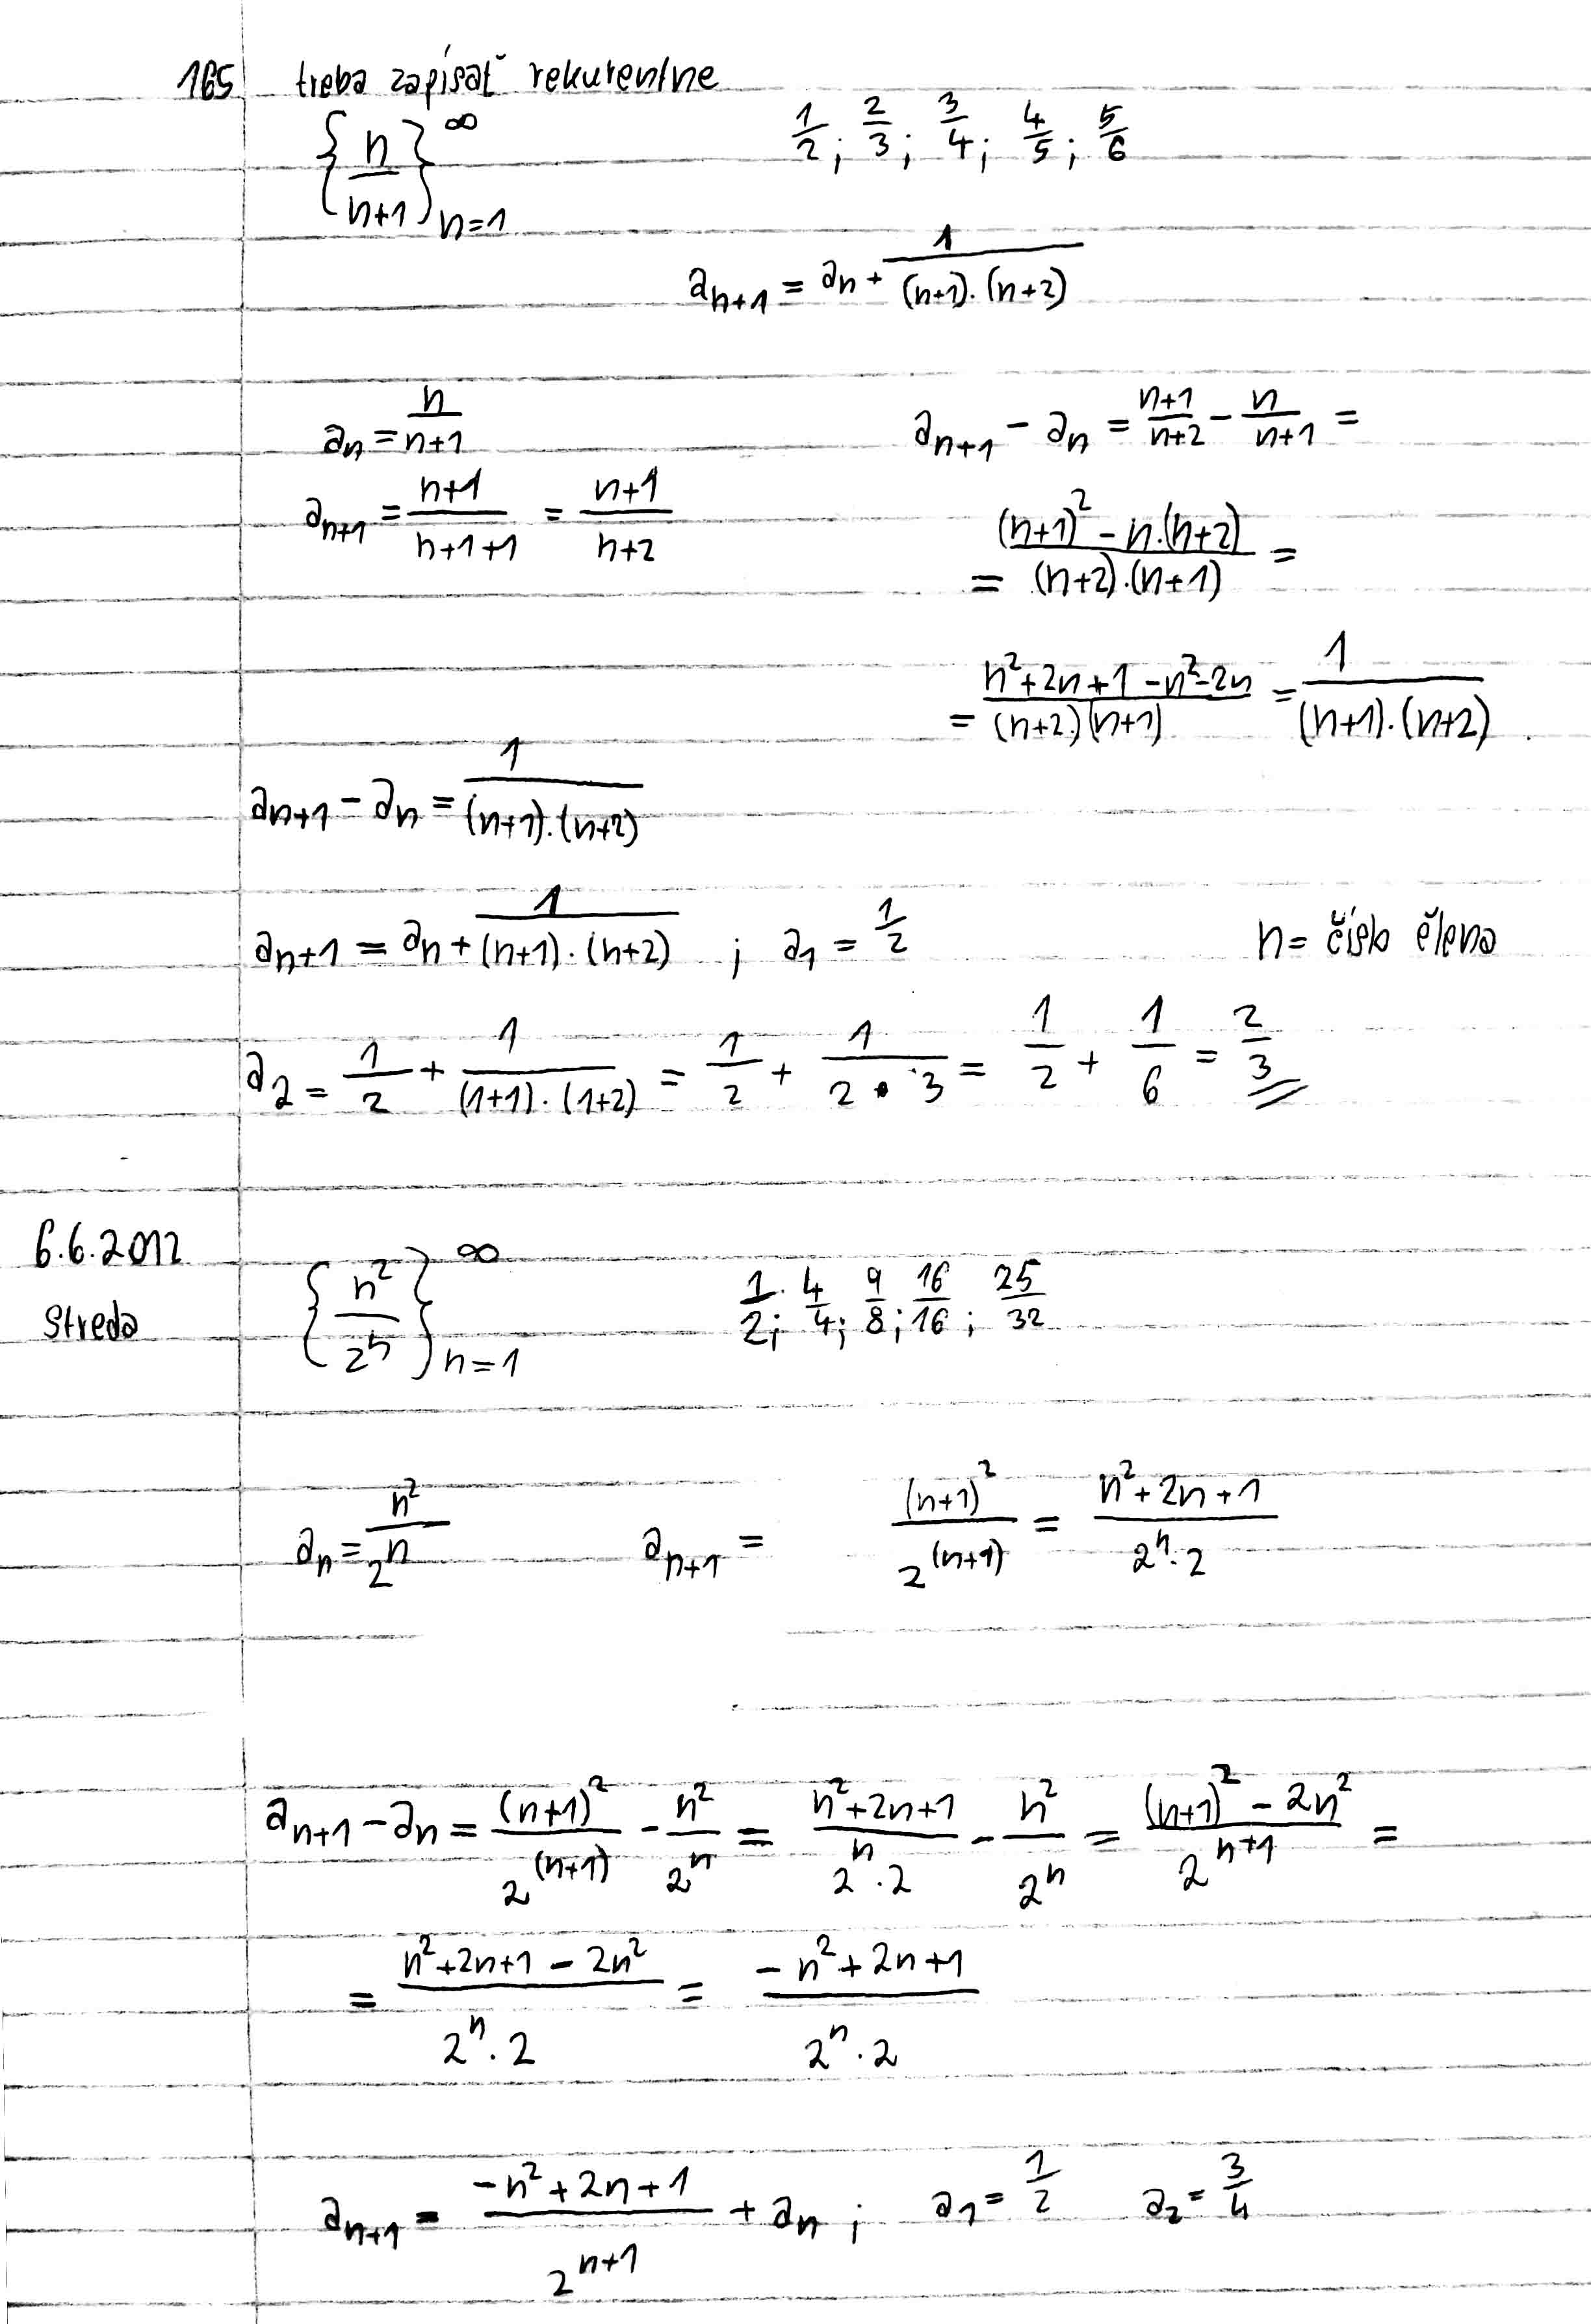 165 treba zapísať rekurentne
{n/(n+1)}_{n=1}^∞   1/2; 2/3; 3/4; 4/5; 5/6
a_{n+1} = a_n + 1/((n+1)·(n+2))
a_n = n/(n+1)   a_{n+1} - a_n = (n+1)/(n+2) - n/(n+1) =
a_{n+1} = (n+1)/(n+1+1) = (n+1)/(n+2)   = ((n+1)^2 - n·(n+2))/((n+2)·(n+1)) =
= (n^2+2n+1-n^2-2n)/((n+2)(n+1)) = 1/((n+1)·(n+2))
a_{n+1} - a_n = 1/((n+1)·(n+2))
a_{n+1} = a_n + 1/((n+1)·(n+2)) ; a_1 = 1/2   n = číslo člena
a_2 = 1/2 + 1/((1+1)·(1+2)) = 1/2 + 1/(2·3) = 1/2 + 1/6 = 2/3
6.6.2012
Streda
{n^2/2^n}_{n=1}^∞   1/2; 4/4; 9/8; 16/16; 25/32
a_n = n^2/2^n   a_{n+1} = (n+1)^2/2^{(n+1)} = (n^2+2n+1)/(2^n·2)
a_{n+1} - a_n = (n+1)^2/2^{(n+1)} - n^2/2^n = (n^2+2n+1)/(2^n·2) - n^2/2^n = ((n+1)^2 - 2n^2)/2^{n+1} =
= (n^2+2n+1-2n^2)/(2^n·2) = (-n^2+2n+1)/(2^n·2)
a_{n+1} = (-n^2+2n+1)/2^{n+1} + a_n ; a_1 = 1/2   a_2 = 3/4